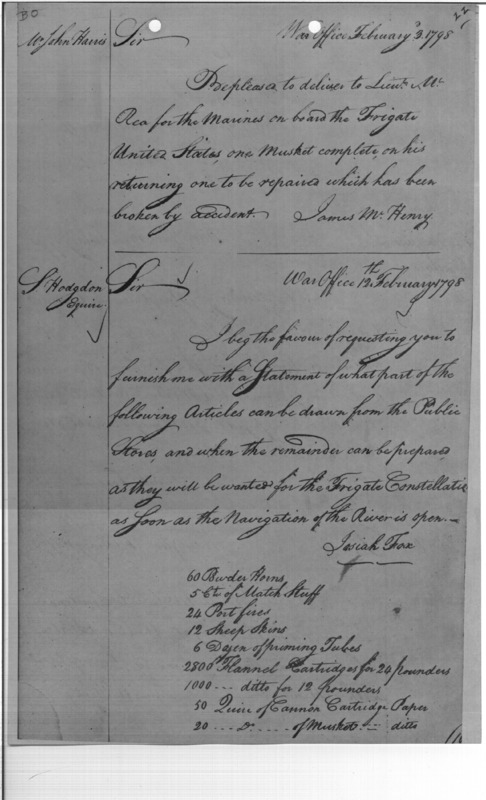 BO
22
Mr John Harris
Sir
War Office February 3. 1798
Be pleased to deliver to Lieut. Mc
Rea for the Marines on board the Frigate
United States one Musket complete, on his
returning one to be repaired which has been
broken by accident. James McHenry
S Hodgdon
Esquire.
Sir
War Office 12th February 1798
I beg the favour of requesting you to
furnish me with a Statement of what part of the
following Articles can be drawn from the Public
Stores, and when the remainder can be prepared,
as they will be wanted for the Frigate Constellatio
as soon as the Navigation of the River is open.—
Josiah Fox
60 Powder Horns
5 Ct. of Match Stuff
24 Port fires
12 Sheep Skins
6 Dozen of priming Tubes
2800 Flannel Cartridges for 24 pounders
1000 --- ditto for 12 pounders
50 Quire of Cannon Cartridge Paper
20 --- Do. ---- of Musket --- ditto